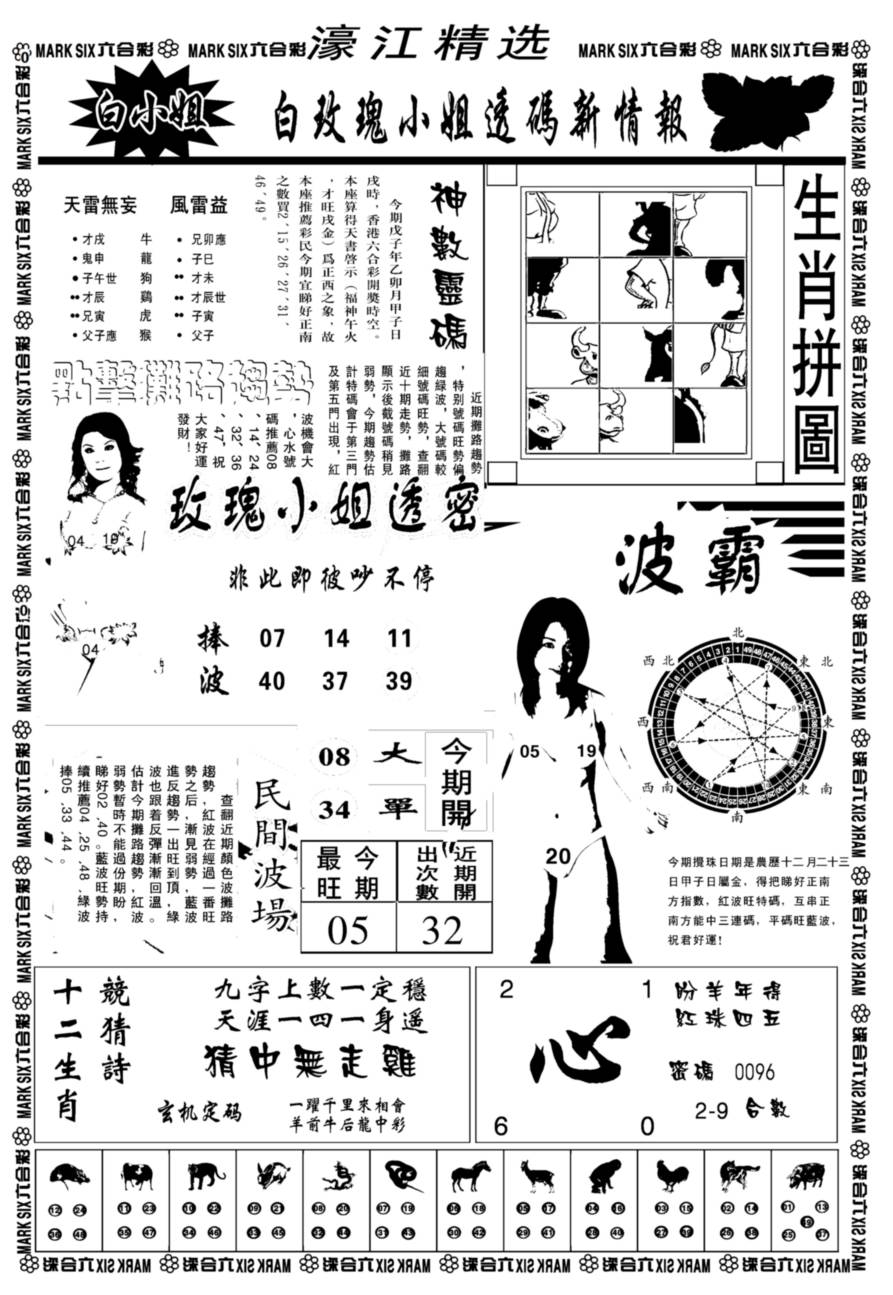 MARK SIX六合彩 MARK SIX六合彩 濠江精选 MARK SIX六合彩 MARK SIX六合彩
白小姐
白玫瑰小姐透碼新情報
天雷無妄 風雷益
才戌 牛 兄卯應
鬼申 龍 子巳
子午世 狗 才未
才辰 鷄 才辰世
兄寅 虎 子寅
父子應 猴 父子
神數靈碼
今期戊子年乙卯月甲子日
戌時，香港六合彩開獎時空。
本座算得天書啓示（福神午火
，才旺戌金）爲正西之象，故
本座推薦彩民今期宜睇好正南
之數買2﹑15﹑26﹑27﹑31﹑
46﹑49。
生肖拼圖
點擊攤路趨勢
近期攤路趨勢
，特别號碼旺勢偏
趨緑波，大號碼較
細號碼旺勢，查翻
近十期走勢，攤路
顯示後截號碼稍見
弱勢，今期趨勢估
計特碼會于第三門
及第五門出現，紅
波機會大
，心水號
碼推薦08
、14、24
、32、36
、47，祝
大家好運
發財！
04 10
玫瑰小姐透密
非此即彼吵不停
04
捧 07 14 11
波 40 37 39
波霸
05 19
20
北
西北 東北
西 東
西南 東南
南
今期攪珠日期是農歷十二月二十三
日甲子日屬金，得把睇好正南
方指數，紅波旺特碼，互串正
南方能中三連碼，平碼旺藍波，
祝君好運!
民間波場
查翻近期顏色波攤路
趨勢，紅波在經過一番旺
勢之后，漸見弱勢，藍波
進反趨勢一出旺到頂，綠
波也跟着反彈漸漸回溫。
估計今期攤路趨勢，紅波
弱勢暫時不能過份期盼，
睇好02 .40。藍波旺勢持
續推薦04 .25 .48，綠波
捧05 .33 .44。
08 大
34 單
今期開
最旺 今期
近期開出次數
05 32
十二生肖
競猜詩
九字上數一定穩
天涯一四一身遥
猜中無走雞
玄机定码
一躍千里來相會
羊前牛后龍中彩
2 1
心
6 0
盼羊年得
紅珠四五
密碼 0096
2-9 合數
12 24 11 23 10 22 09 21 08 20 07 19 06 18 05 17 04 16 03 15 02 14 01 13
49
36 48 35 47 34 46 33 45 32 44 31 43 30 42 29 41 28 40 27 39 26 38 25 37
MARK SIX六合彩 MARK SIX六合彩 MARK SIX六合彩 MARK SIX六合彩 MARK SIX六合彩 MARK SIX六合彩